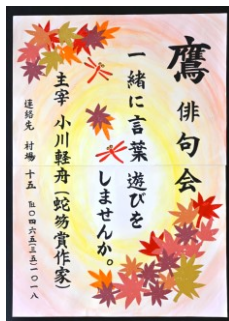 鷹 俳句会
一緒に言葉遊びを
しませんか。
主宰 小川軽舟(蛇笏賞作家)
連絡先 村場 十五 ℡〇四六五(三五)一〇一八